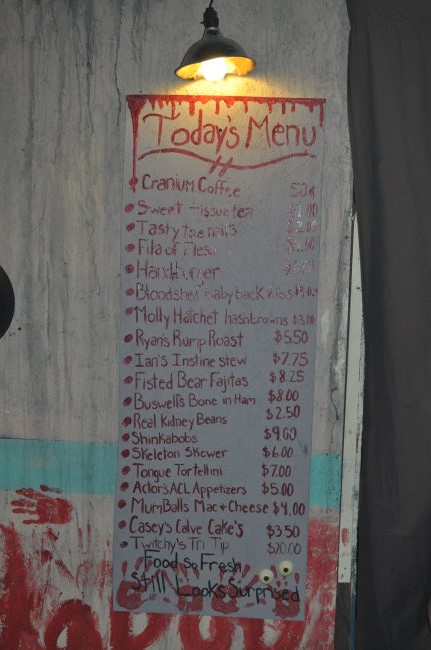 Today's Menu
Cranium Coffee 50¢
Sweet tissue tea
Tasty toe nails
Fila of Flesh
Handburger
Bloodshed babyback Ribs
Molly Hatchet hashbrowns $3.00
Ryan's Rump Roast $5.50
Ian's Instine stew $7.75
Fisted Bear Fajitas $8.25
Buswell's Bone in Ham $8.00
Real Kidney Beans $2.50
Shinkabobs $9.00
Skeleton Skewer $6.00
Tongue Tortellini $7.00
Actor's ACL Appetizers $5.00
MumBalls Mac + Cheese $4.00
Casey's Calve Cake's $3.50
Twitchy's Tri Tip $20.00
Food so Fresh
Still Looks Surprised